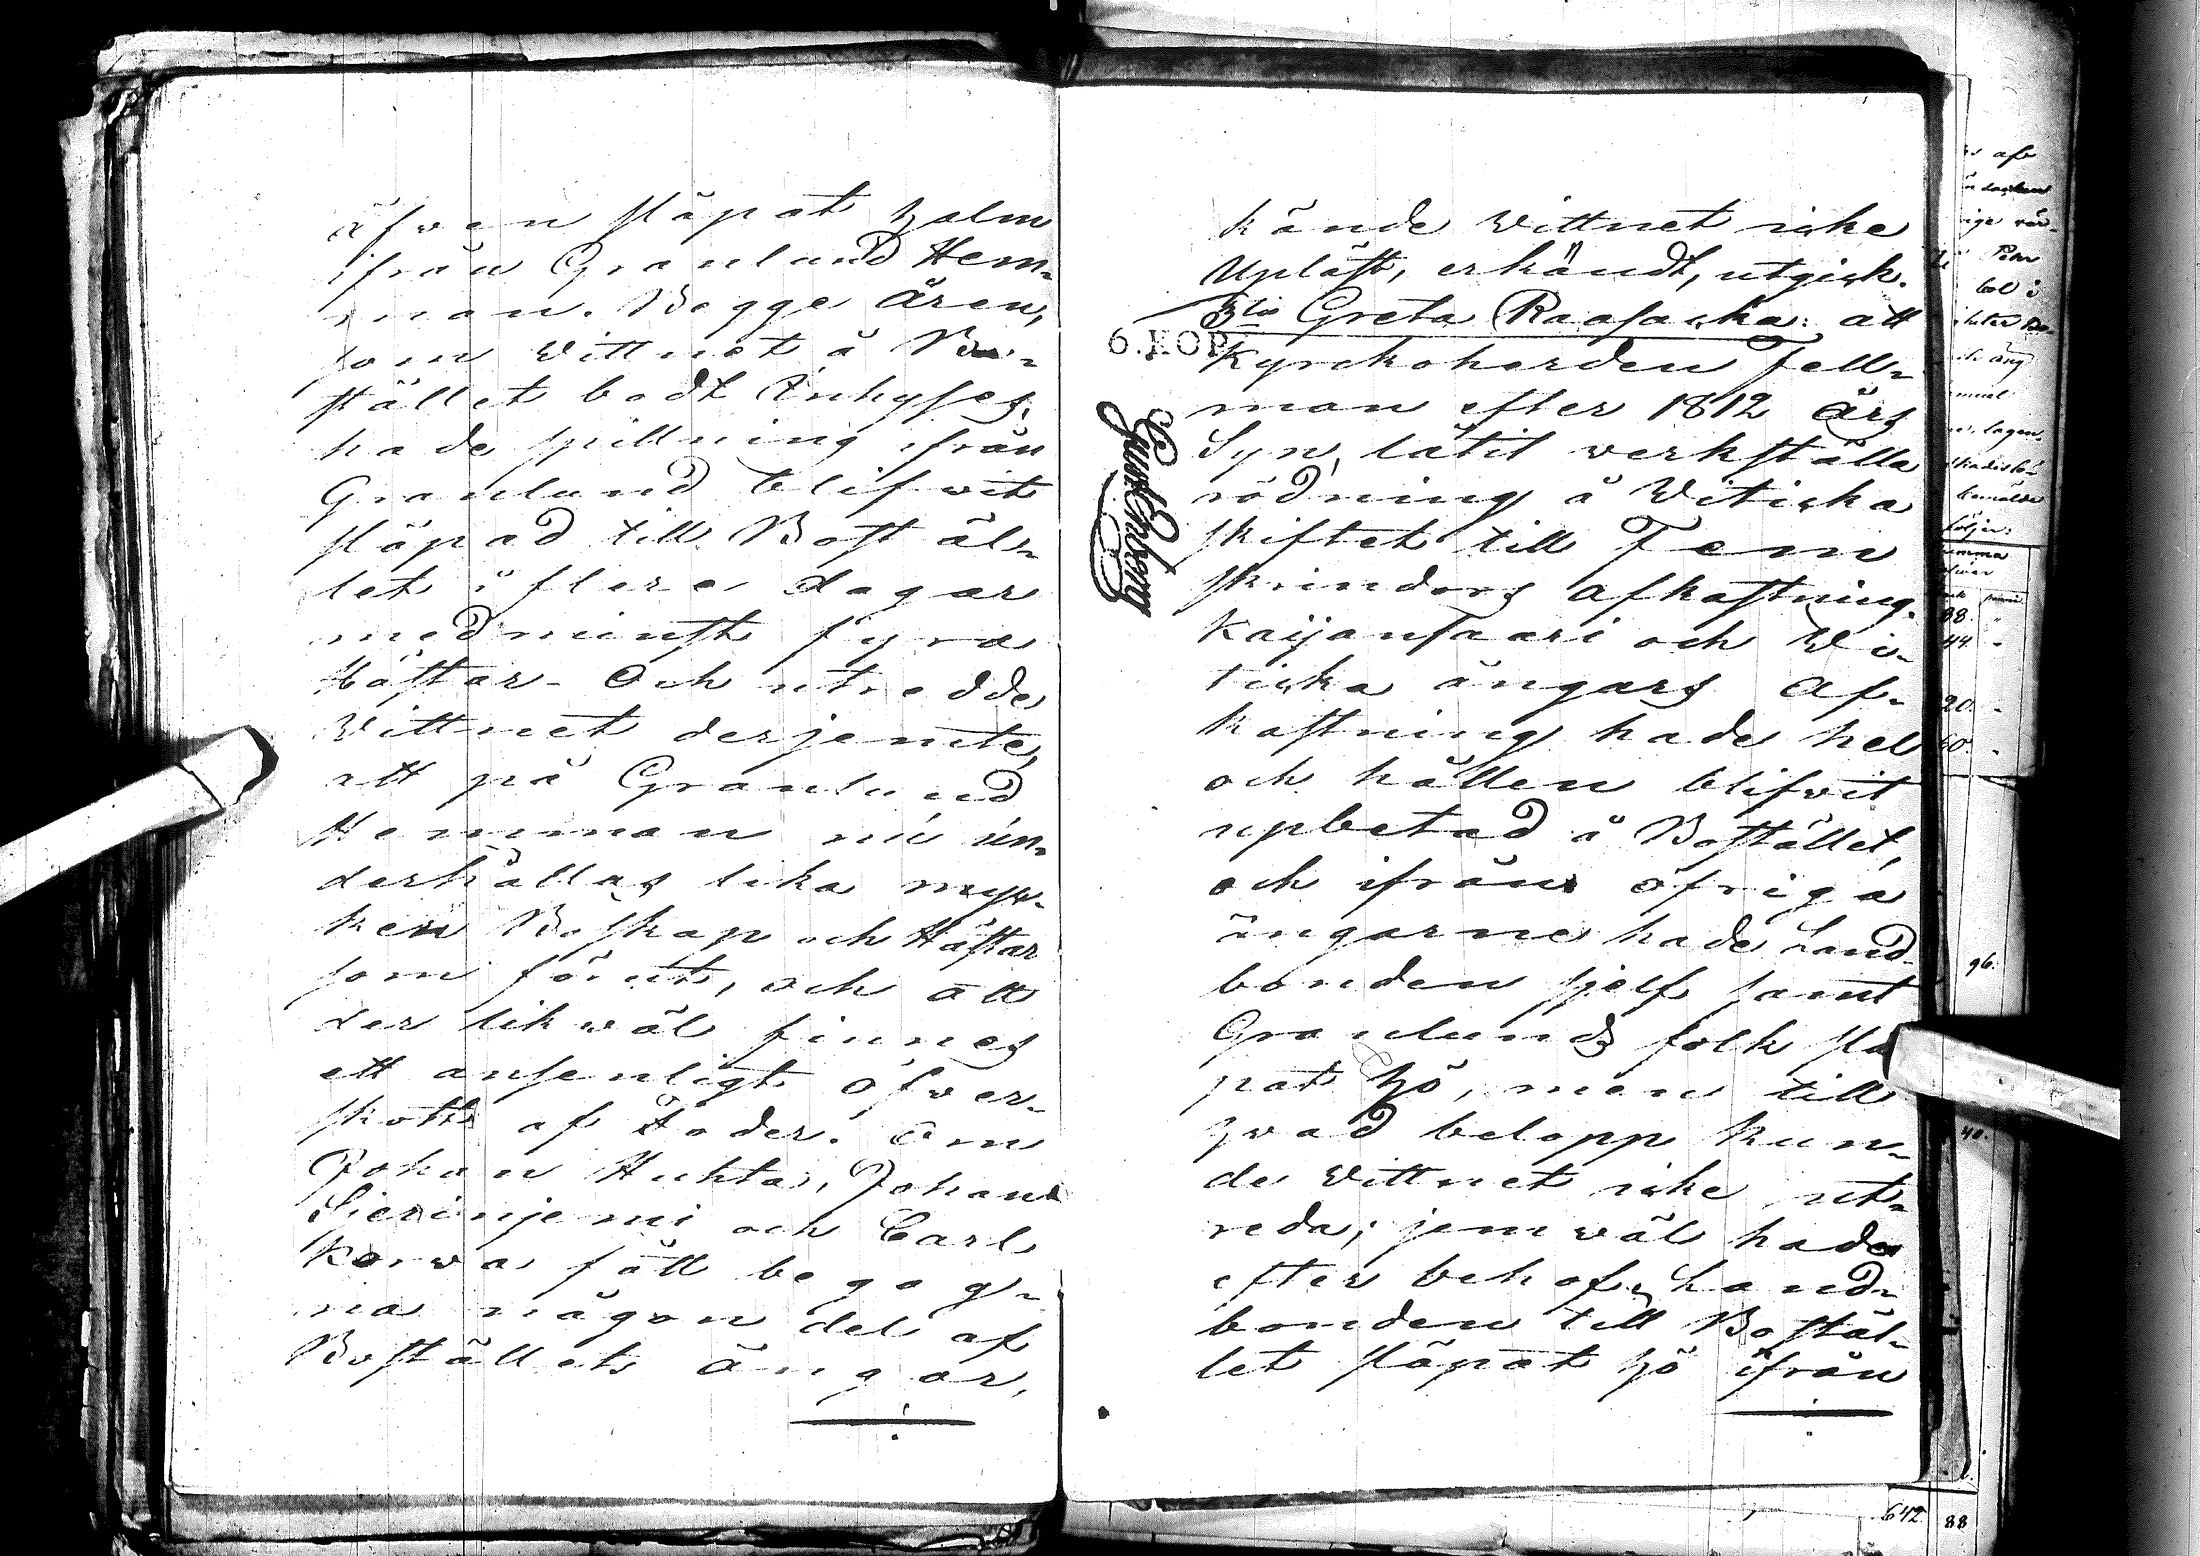 äfwen släpat halm
ifrån Granlund Hem-
man. Begge åren,
som Wittnet å Bo-
stället bodt Inhyses,
hade spillning ifrån
Granlund blifwit
släpad till Bostäl-
let i flere dagar
med minst fyra
Hästar. Och utredde
Wittnet derjemte,
att på Granlund
Hemman nu un-
derhållas lika myc-
ken Boskap och Hästar
som förut, och att
der likwäl finnes
ett ansenligt öfwer-
skott af Foder. Om
Johan Huhta, Johan
Sierinjemi och Carl
Korwa fått begag-
na någon del af
Boställets ängar,
kände Wittnet icke
Upläst, erkändt, utgick.
3tio Greta Raasacka: att
6. KOP.
Kyrckoherden Fell-
man efter 1812 års
Syn, låtit werkställa
rödning å Witicka
skiftet till Fem
skrindors afkastning.
Kaijansaari och Wi-
ticka ängars af-
kastning hade hel
och hållen blifwit
upbetad å Bostället,
och ifrån öfriga
ängarne hade Land-
bonden sjelf samt
Granlunds folk slä
pat hö, men till
hwad belopp kun-
de Wittnet icke ut-
reda; jemwäl hade
efter behof Land-
bonden till Bostäl-
let släpat hö ifrån
88
44
20
60
96.
40.
642 88